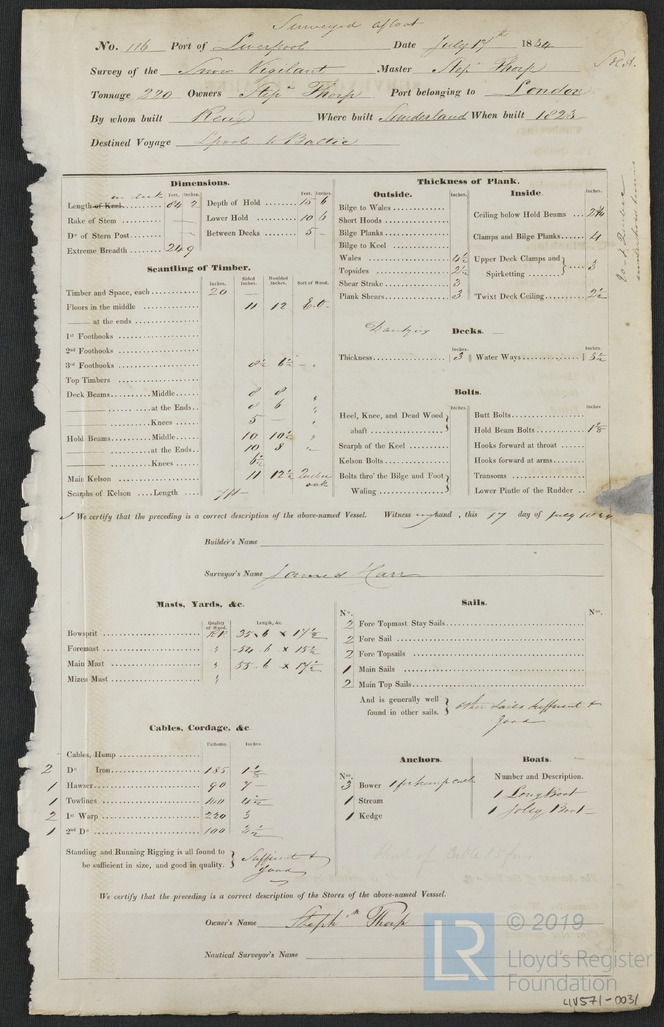 Surveyed afloat
No. 116 Port of Liverpool Date July 17th 1834
Survey of the Snow Vigilant Master Stepn Thorp
Tonnage 220 Owners Stepn Thorp Port belonging to London
By whom built Reay Where built Sunderland When built 1823
Destined Voyage Lpool to Baltic
Dimensions.
Feet. Inches.
Length of Keel 84 2
Rake of Stem
Do of Stern Post
Extreme Breadth 24 9
Feet. Inches.
Depth of Hold 15 6
Lower Hold 10 6
Between Decks 5 -
Scantling of Timber.
Sided Inches. Moulded Inches. Sort of Wood.
Timber and Space, each 20
Floors in the middle 11 12 E.O.
at the ends
1st Foothooks
2nd Foothooks
3rd Foothooks 8½ 6½
Top Timbers
Deck Beams Middle 8 8 "
at the Ends 8 6 "
Knees 5 - "
Hold Beams Middle 10 10½ "
at the Ends 10 8 "
Knees 6½
Main Kelson 11 12½ Quebec oak
Scarphs of Kelson Length
Thickness of Plank.
Outside.
Inches.
Bilge to Wales
Short Hoods
Bilge Planks
Bilge to Keel
Wales 4½
Topsides 2½
Shear Strake 3
Plank Shears 3
Inside.
Inches.
Ceiling below Hold Beams
Clamps and Bilge Planks 4
Upper Deck Clamps and Spirketting 3
'Twixt Deck Ceiling 2½
Dantzig Decks.
Inches.
Thickness 3
Inches.
Water Ways 5½
Bolts.
Inches
Heel, Knee, and Dead Wood abaft
Scarph of the Keel
Kelson Bolts
Bolts thro' the Bilge and Foot Waling
Inches
Butt Bolts
Hold Beam Bolts 1⅛
Hooks forward at throat
Hooks forward at arms
Transoms
Lower Pintle of the Rudder
I We certify that the preceding is a correct description of the above-named Vessel. Witness my hand, this 17 day of July 1834
Builder's Name
Surveyor's Name James Karr
Masts, Yards, &c.
Quality of Wood. Length, &c.
Bowsprit R.P. 35.6 × 17½
Foremast " 54.6 × 15½
Main Mast " 55.6 × 17½
Mizen Mast "
Sails.
No. No.
2 Fore Topmast Stay Sails
2 Fore Sail
2 Fore Topsails
1 Main Sails
2 Main Top Sails
And is generally well found in other sails. other sails sufficient & good
Cables, Cordage, &c
Fathoms. Inches.
Cables, Hemp
2 Do Iron 185 1⅛
1 Hawser 90 7
1 Towlines 100
2 1st Warp 220 3
1 2nd Do 100 2½
Standing and Running Rigging is all found to be sufficient in size, and good in quality. Sufficient & Good
Anchors.
No.
3 Bower 1 for hemp cable
1 Stream
1 Kedge
Boats.
Number and Description.
1 Long Boat
1 Jolly Boat
We certify that the preceding is a correct description of the Stores of the above-named Vesssel.
Owner's Name Stephn Thorp
Nautical Surveyor's Name
LR
© 2019
Lloyd's Register
Foundation
LIV571-0031